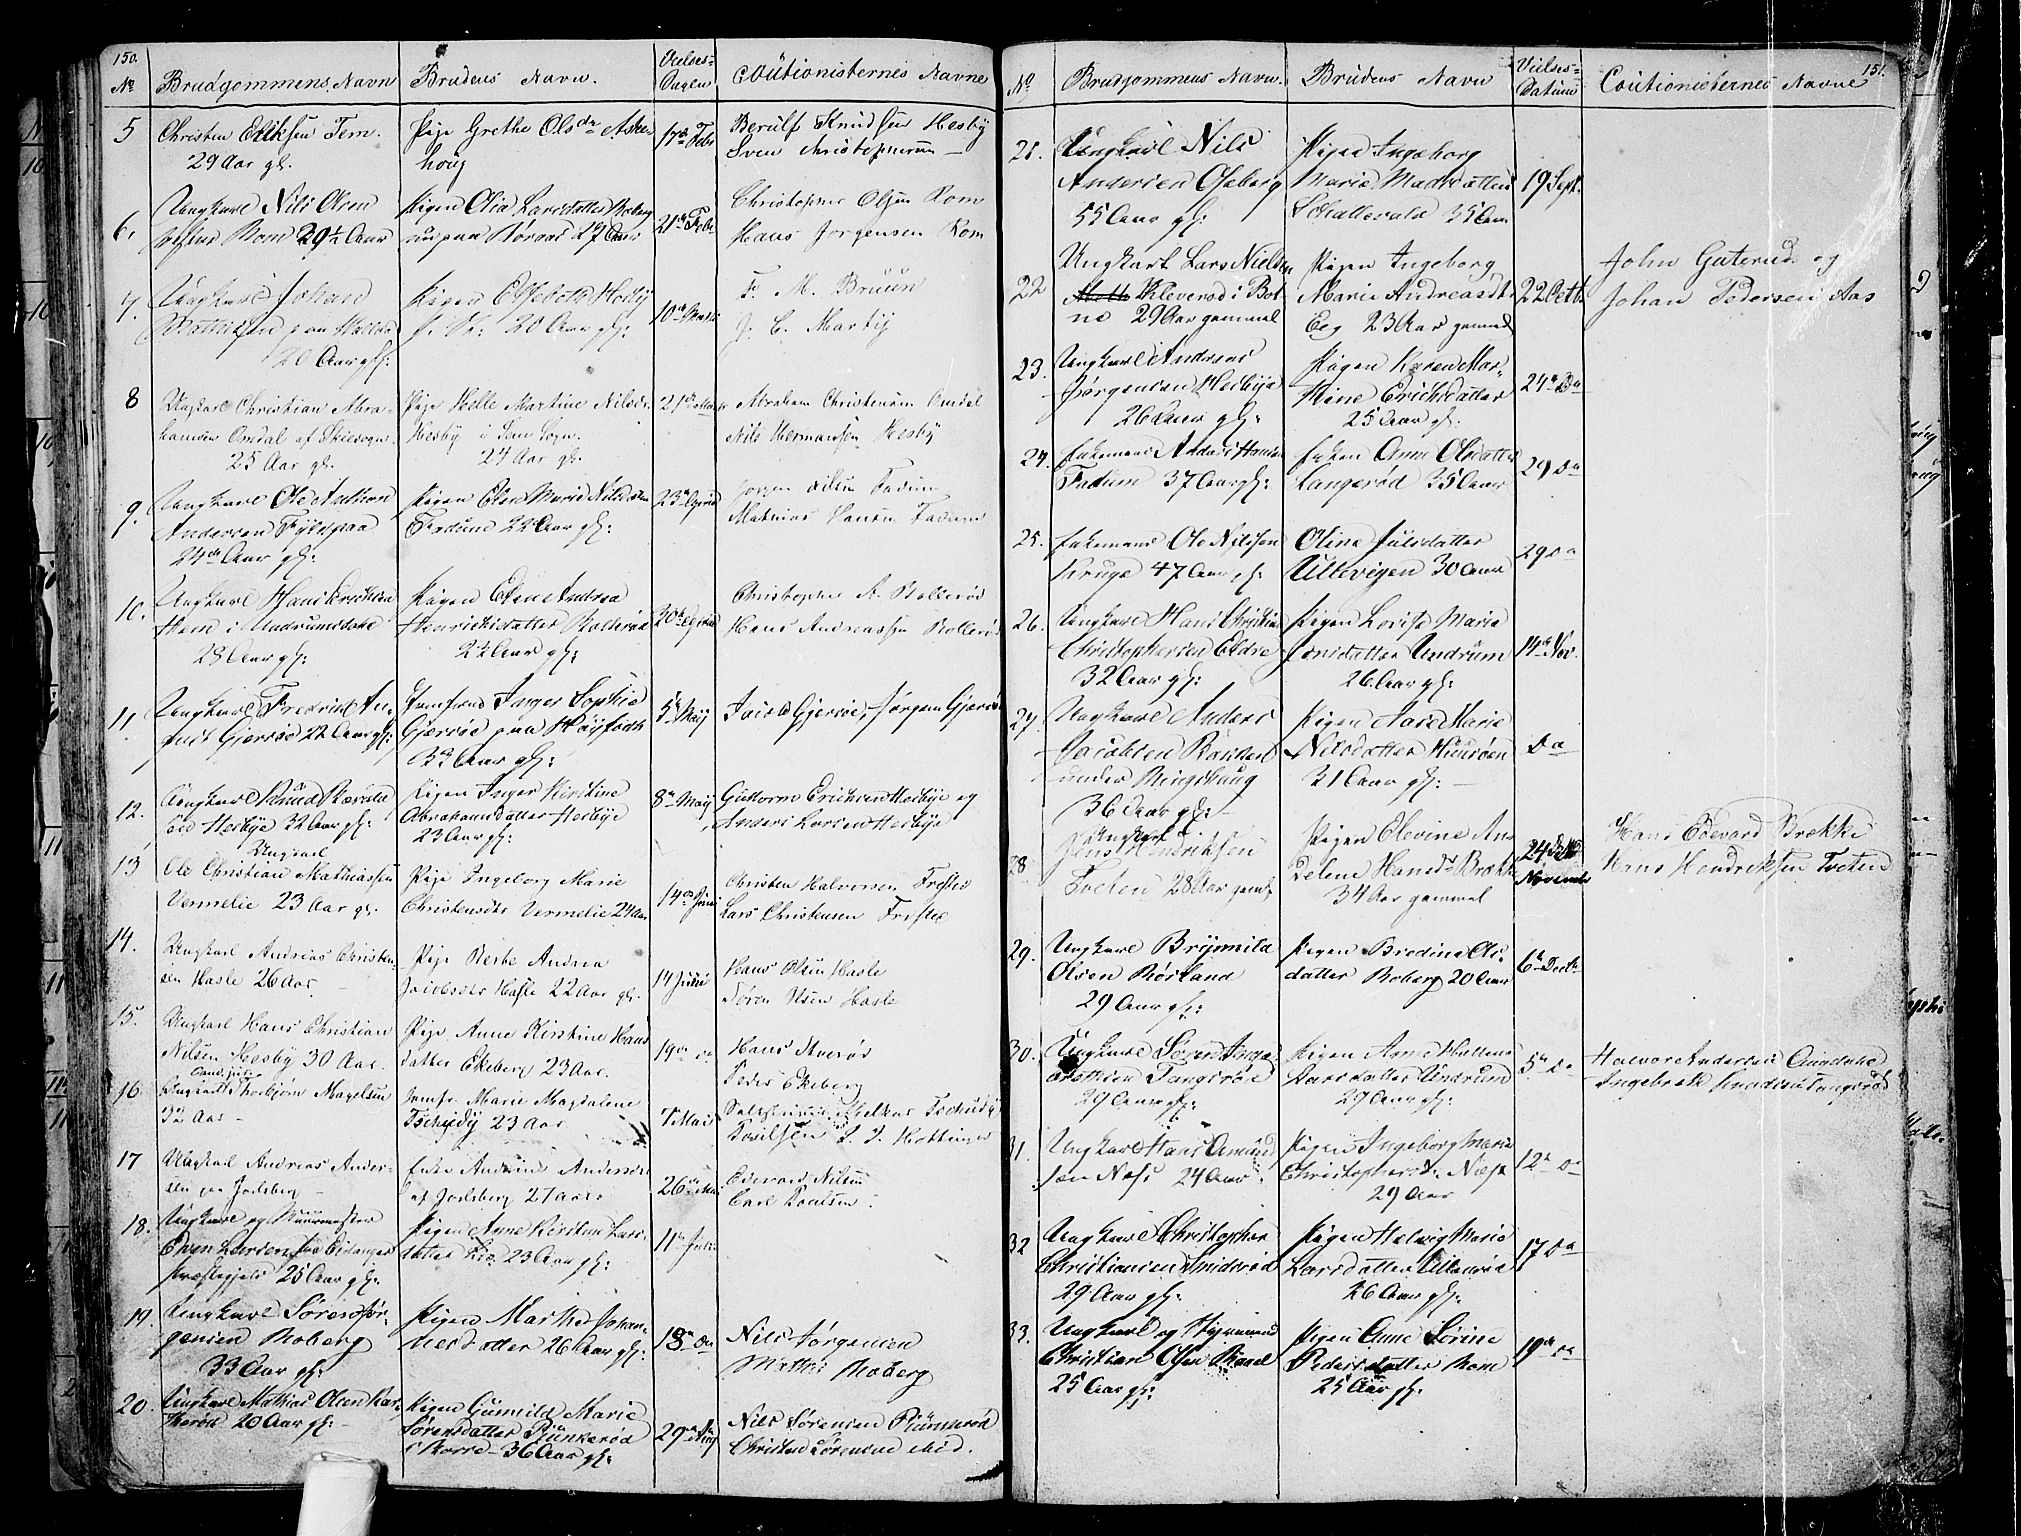 150.
No Brudgommens Navn Brudens Navn. Vielses-Dagen Coutionisternes Navne
5 Christen Eriksen Tem. 29 Aar gl.
Pige Grethe Olsdr Askehoug
17de Febr
Berulf Knudsen Hesby
Sven Christophersen
6. Ungkarl Nils Olsen Rom 29½ Aar
Pigen Olia Larsdatter Roberg 27 Aar
21de Febr
Christopher Olsen Rom
Hans Jørgensen Rom
7. Ungkarl Johan 20 Aar gl:
Pigen Elsebeth Hesby 20 Aar gl:
10de Marts
F. M. Bruun
J. C. Martly
8 Ungkarl Christian Abrahamsen Omdal af Skiesogn. 25 Aar gl.
Pige Helle Martine Nilsdr Hesby i Sem Sogn. 24 Aar gl.
21de Marts
Abraham Christensen Omdal
Nils Hermansen Hesby
9. Ungkarl Ole Anthon Andersen Fyldpaa 24de Aar gl:
Pigen Elen Marie Nilsdatter Fadum 22 Aar gl:
23de April
Jørgen Nilsen Fadum
Mathias Hansen Fadum
10. Ungkarl Hans Erichsen Hem i Undrumsdahl 28 Aar gl:
Pigen Elen Andrea Henrichsdatter Rollerød 22 Aar gl:
30te April
Christopher A. Rollerød
Hans Andreassen Rollerød
11. Ungkarl Fredrich August Gjersøe 22 Aar gl:
Jomfrue Inger Sophie Gjersøe paa Høyjordh 32 Aar gl:
5te Maij
Jacob Gjersøe, Jørgen Gjersøe
12. Ungkarl Knud Hesbye 32 Aar gl:
Pigen Inger Kirstine Abrahamsdatter Hesbye 23 Aar gl:
8de Maij
Guttorm Erichsen Hesbye og
Anders Larsen Hesbye
13 Ungkarl Ole Christian Mathiassen Vermelie 23 Aar gl.
Pige Ingeborg Marie Christensdtr Vermelie 24 Aar
14de Juni
Christen Halvorsen Frestie
Lars Christensen Frestie
14. Ungkarl Andreas Christensen Hasle 26 Aar.
Pige Berthe Andrea Jacobsdr Hasle 22 Aar gl.
14 Juni
Hans Olsen Hasle
Søren Olsen Hasle
15. Ungkarl Hans Christian Nilsen Hesby 30 Aar.
Pige Anne Kirstine Hansdatter Ekeberg 23 Aar.
19de do
Hans Averød
Peder Ekeberg
16. Ungkarl Thorbjørn Magelsen 32 Aar
Jomfr. Marie Magdalene Tschudy 23 Aar
7 Mai
17 Ungkarl Andreas Andersen paa Jarlsberg
Enke Andrine Andersdr af Jarlsberg 27 Aar
26de Mai
Edevard Nilsen
Carl Poulsen
18. Ungkarl og Muurmester Edvin Larsen fra Eidanger Præstegjeld 25 Aar gl:
Pigen Anne Kirstine Larsdatter 23 Aar gl:
11te Juli
19. Ungkarl Søren Jørgensen Roberg 33 Aar gl:
Pigen Marthe Johannesdatter 26 Aar gl:
18de do
Nils Jørgensen
Mathis Roberg
20. Ungkarl Mathias Olsen 20 Aar gl:
Pigen Gunnild Marie Sørensdatter Runkerød i Borre 36 Aar gl:
29de Aug
Nils Sørensen Runkerød
Christen Sørensen Mid.
151.
No Brudgommens Navn. Brudens Navn Vielses-Datum Coutionisternes Navne
21. Ungkarl Nils Andersen Oseberg 55 Aar gl:
Pigen Ingeborg Marie Madsdatter Schattevold 35 Aar
19 Sept.
22 Ungkarl Lars Nielsen Kleverød i Botne 29 Aar gammel
Pigen Ingeborg Marie Andreasdtr Eeg 23 Aar gammel
22 Octb.
John Guterud og
Johan Pedersen Aas
23. Ungkarl Andreas Jørgensen Hesbye 26 Aar gl:
Pigen Karen Martine Erichsdatter 25 Aar gl:
24de Do
24. Enkemand Anders Hansen Fadum 37 Aar gl:
Enken Anne Olsdatter Langerød 35 Aar
29 Do
25. Enkemand Ole Nilssen Kruge 47 Aar gl:
Oline Julsdatter Ullevigen 30 Aar
29 Do
26. Ungkarl Hans Christian Christophersen Eldre 32 Aar gl:
Pigen Lovise Marie Jensdatter Undrum 26 Aar gl:
14de Nov.
27. Ungkarl Anders Jacobsen Bakken under Ringshaug 36 Aar gl:
Pigen Aase Marie Nilsdatter 31 Aar gl:
Do
28 Ungkarl Jens Hendriksen Tveten 28 Aar gamle
Pigen Olevine Andelene Hansdr Brække 34 Aar gammel
24de November
Hans Edevard Brække
Hans Hendriksen Tveten
29. Ungkarl Brynnild Olsen Rørland 29 Aar gl:
Pigen Bredine Olsdatter Roberg 20 Aar
6te Decbr
30. Ungkarl Søren Ingebrethsen Tangsrøe 29 Aar gl:
Pigen Anne Hellene Larsdatter Undrum 29 Aar gl:
5te Do
Halvor Andersen
Ingebreth Knudsen Tangsrød
31. Ungkarl Hans Amundsen Næss 24 Aar
Pigen Ingeborg Marie Christophersdr Næss 29 Aar
12te Do
32 Ungkarl Christopher Christiansen Smidsrød 29 Aar gl:
Pigen Helvig Marie Larsdatter 26 Aar gl:
17 Do
33. Ungkarl og Styrmand Christian Olsen 25 Aar gl:
Pigen Anne Sørine Pedersdatter Rom 25 Aar gl:
19de do